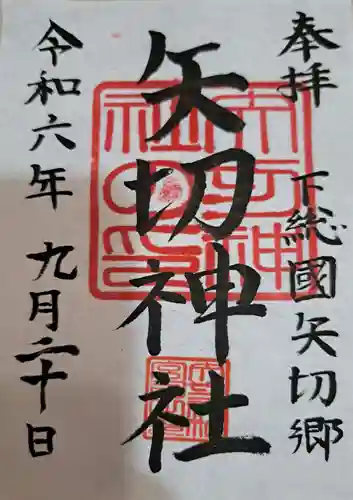 奉拝
下総國矢切郷
矢切神社
令和六年九月二十日